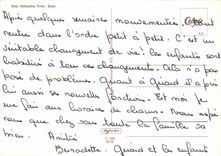 Das römische Trier, Dom
Après quelques semaines mouvementées, tout
rentre dans l'ordre petit à petit. C'est un
véritable changement de vie : les enfants sont
habitués à tous ces changements. Cela n'a pas
posé de problèmes. Quant à Gérard il a pris
lui aussi ses nouvelles fonctions. Et moi je
me fais aux horaires de chacun. Nous espé-
rons que chez vous toute la famille va
bien. Amitiés
Bernadette, Gérard et les enfants